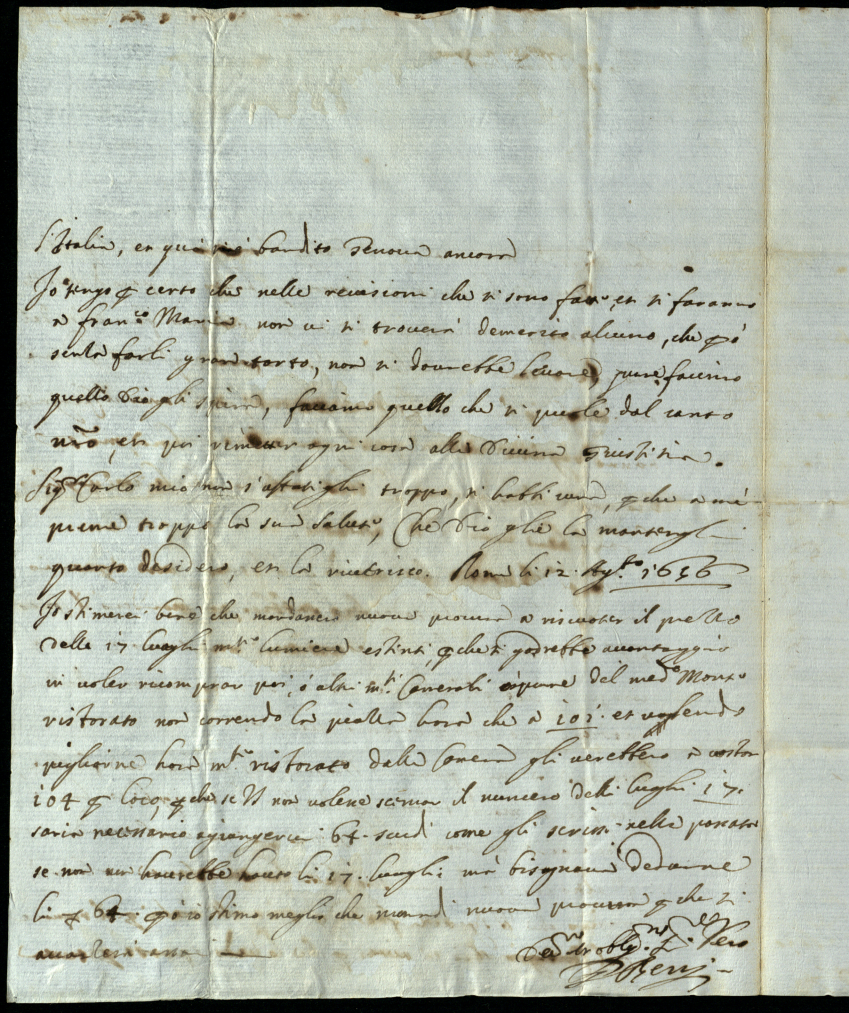 l'Italia, et qui s'è bandito Genova ancora
Io tengo p certo che nelle revisioni che si sono fatte, et si faranno
a Fran.co Maria non vi si troverà demerito alcuno, che p ò
senza farli gran torto, non si dovrebbe levare, pure faccino
quello Dio gli spira, faciamo quello che si puole dal canto
nr̃o, et poi rimetter ogni cosa alla Divina Giustitia.
Sig.r Carlo mio non s'affatighi troppo, si habbi cura, p che a me
preme troppo la sua salute, che Dio glie la mantenghi
quanto desidero, et la riverisco. Roma li 12 Ag.to 1656
Io stimerei bene che mandasse nuova procura a riscuoter il prezzo
delli 17 luoghi m.ti Lumiere estinti, p che si godrebbe avantaggio
in voler ricomprar poi, ò altri m.ti Camerali ò pure del med.o Monte
ristorato non correndo la piazza hora che a 101. et volendo
pigliarne hora m.te ristorato dalla Camera gli verebbero a costar
104 p loco, p che se VS non volesse scemar il numero delli luoghi 17.
saria necessario agiongervi 64 scudi come gli scrissi nella passata
se non non haverebbe hauto li 17. luoghi: mà bisognava dedurne
li p 64 p ò io stimo meglio che mandi nuova procura p che si
avanzerà assai